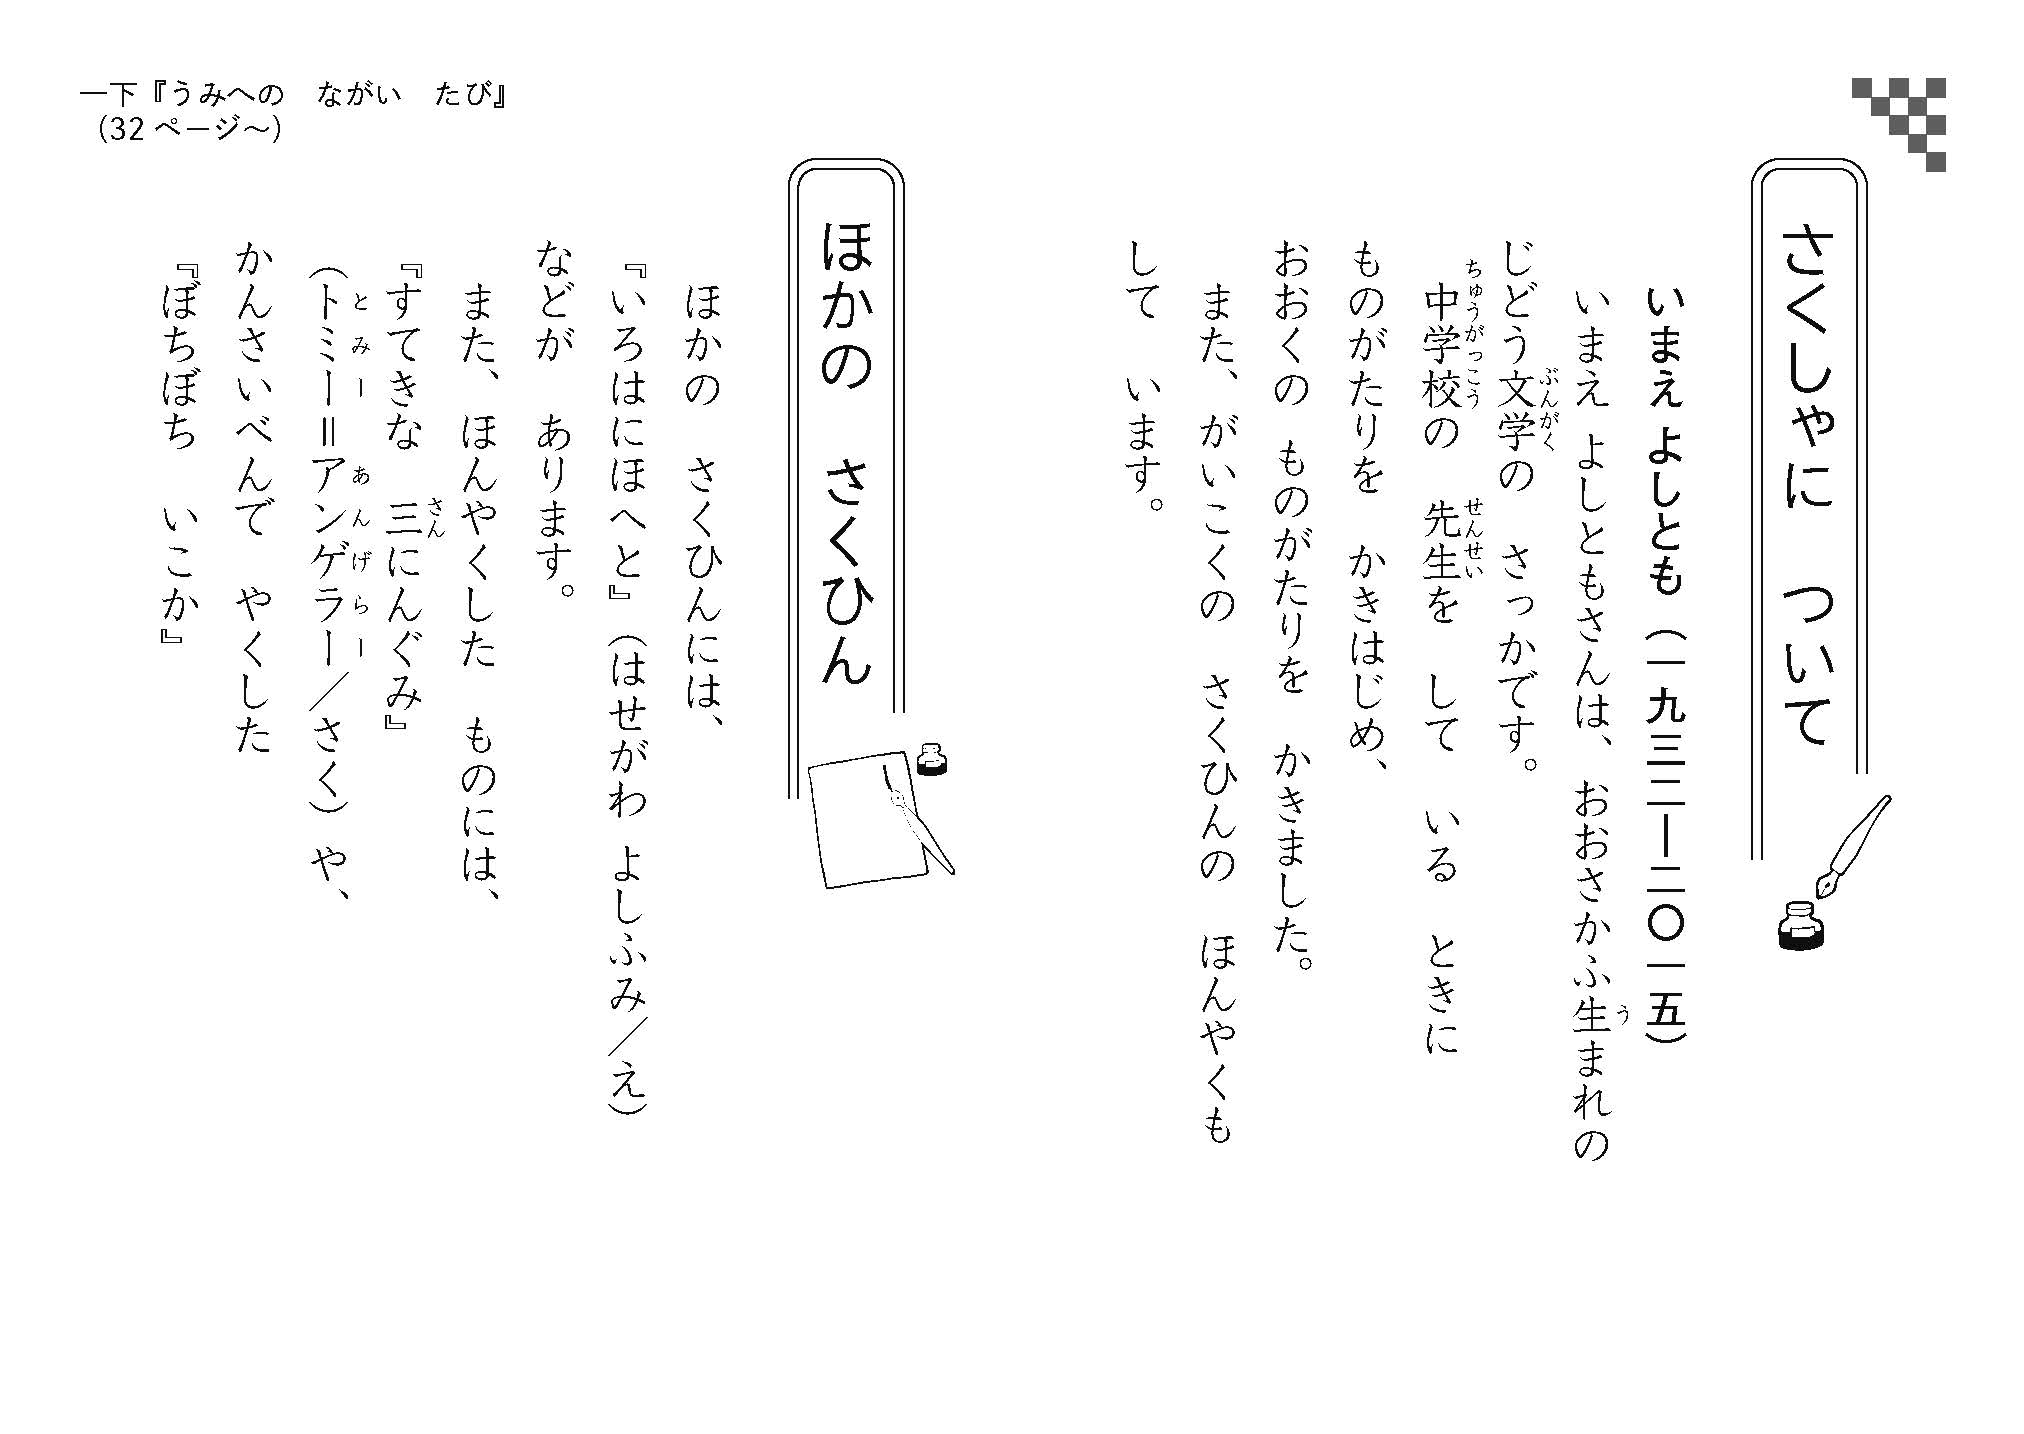 一下『うみへの　ながい　たび』
（32 ページ〜）
さくしゃに　ついて
いまえ よしとも（一九三二―二〇一五）
いまえ よしともさんは、おおさかふ生まれの
じどう文学の　さっかです。
中学校の　先生を　して　いる　ときに
ものがたりを　かきはじめ、
おおくの　ものがたりを　かきました。
また、がいこくの　さくひんの　ほんやくも
して　います。
ほかの　さくひん
ほかの　さくひんには、
『いろはにほへと』（はせがわ よしふみ／え）
などが　あります。
また、ほんやくした　ものには、
『すてきな　三にんぐみ』
（トミー＝アンゲラー／さく）や、
かんさいべんで　やくした
『ぼちぼち　いこか』